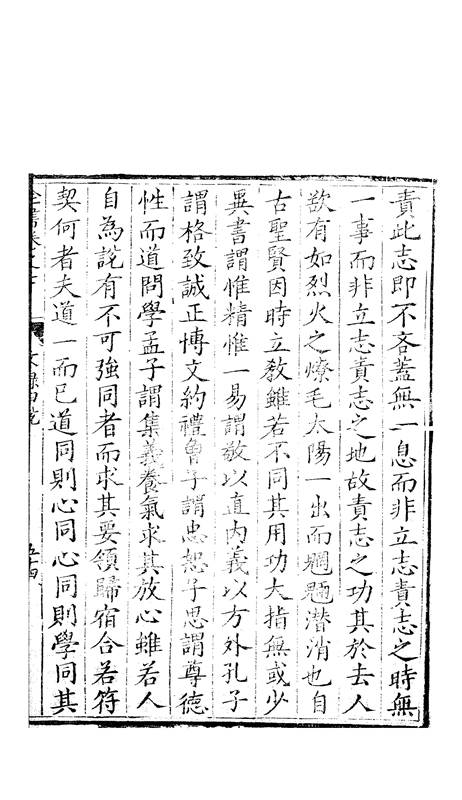 責此志即不吝蓋無一息而非立志責志之時無
一事而非立志責志之地故責志之功其於去人
欲有如烈火之燎毛太陽一出而魍魎潛消也自
古聖賢因時立教雖若不同其用功大指無或少
異書謂惟精惟一易謂敬以直內義以方外孔子
謂格致誠正博文約禮曾子謂忠恕子思謂尊德
性而道問學孟子謂集義養氣求其放心雖若人
自為說有不可強同者而求其要領歸宿合若符
契何者夫道一而已道同則心同心同則學同其
文錄四 五十四